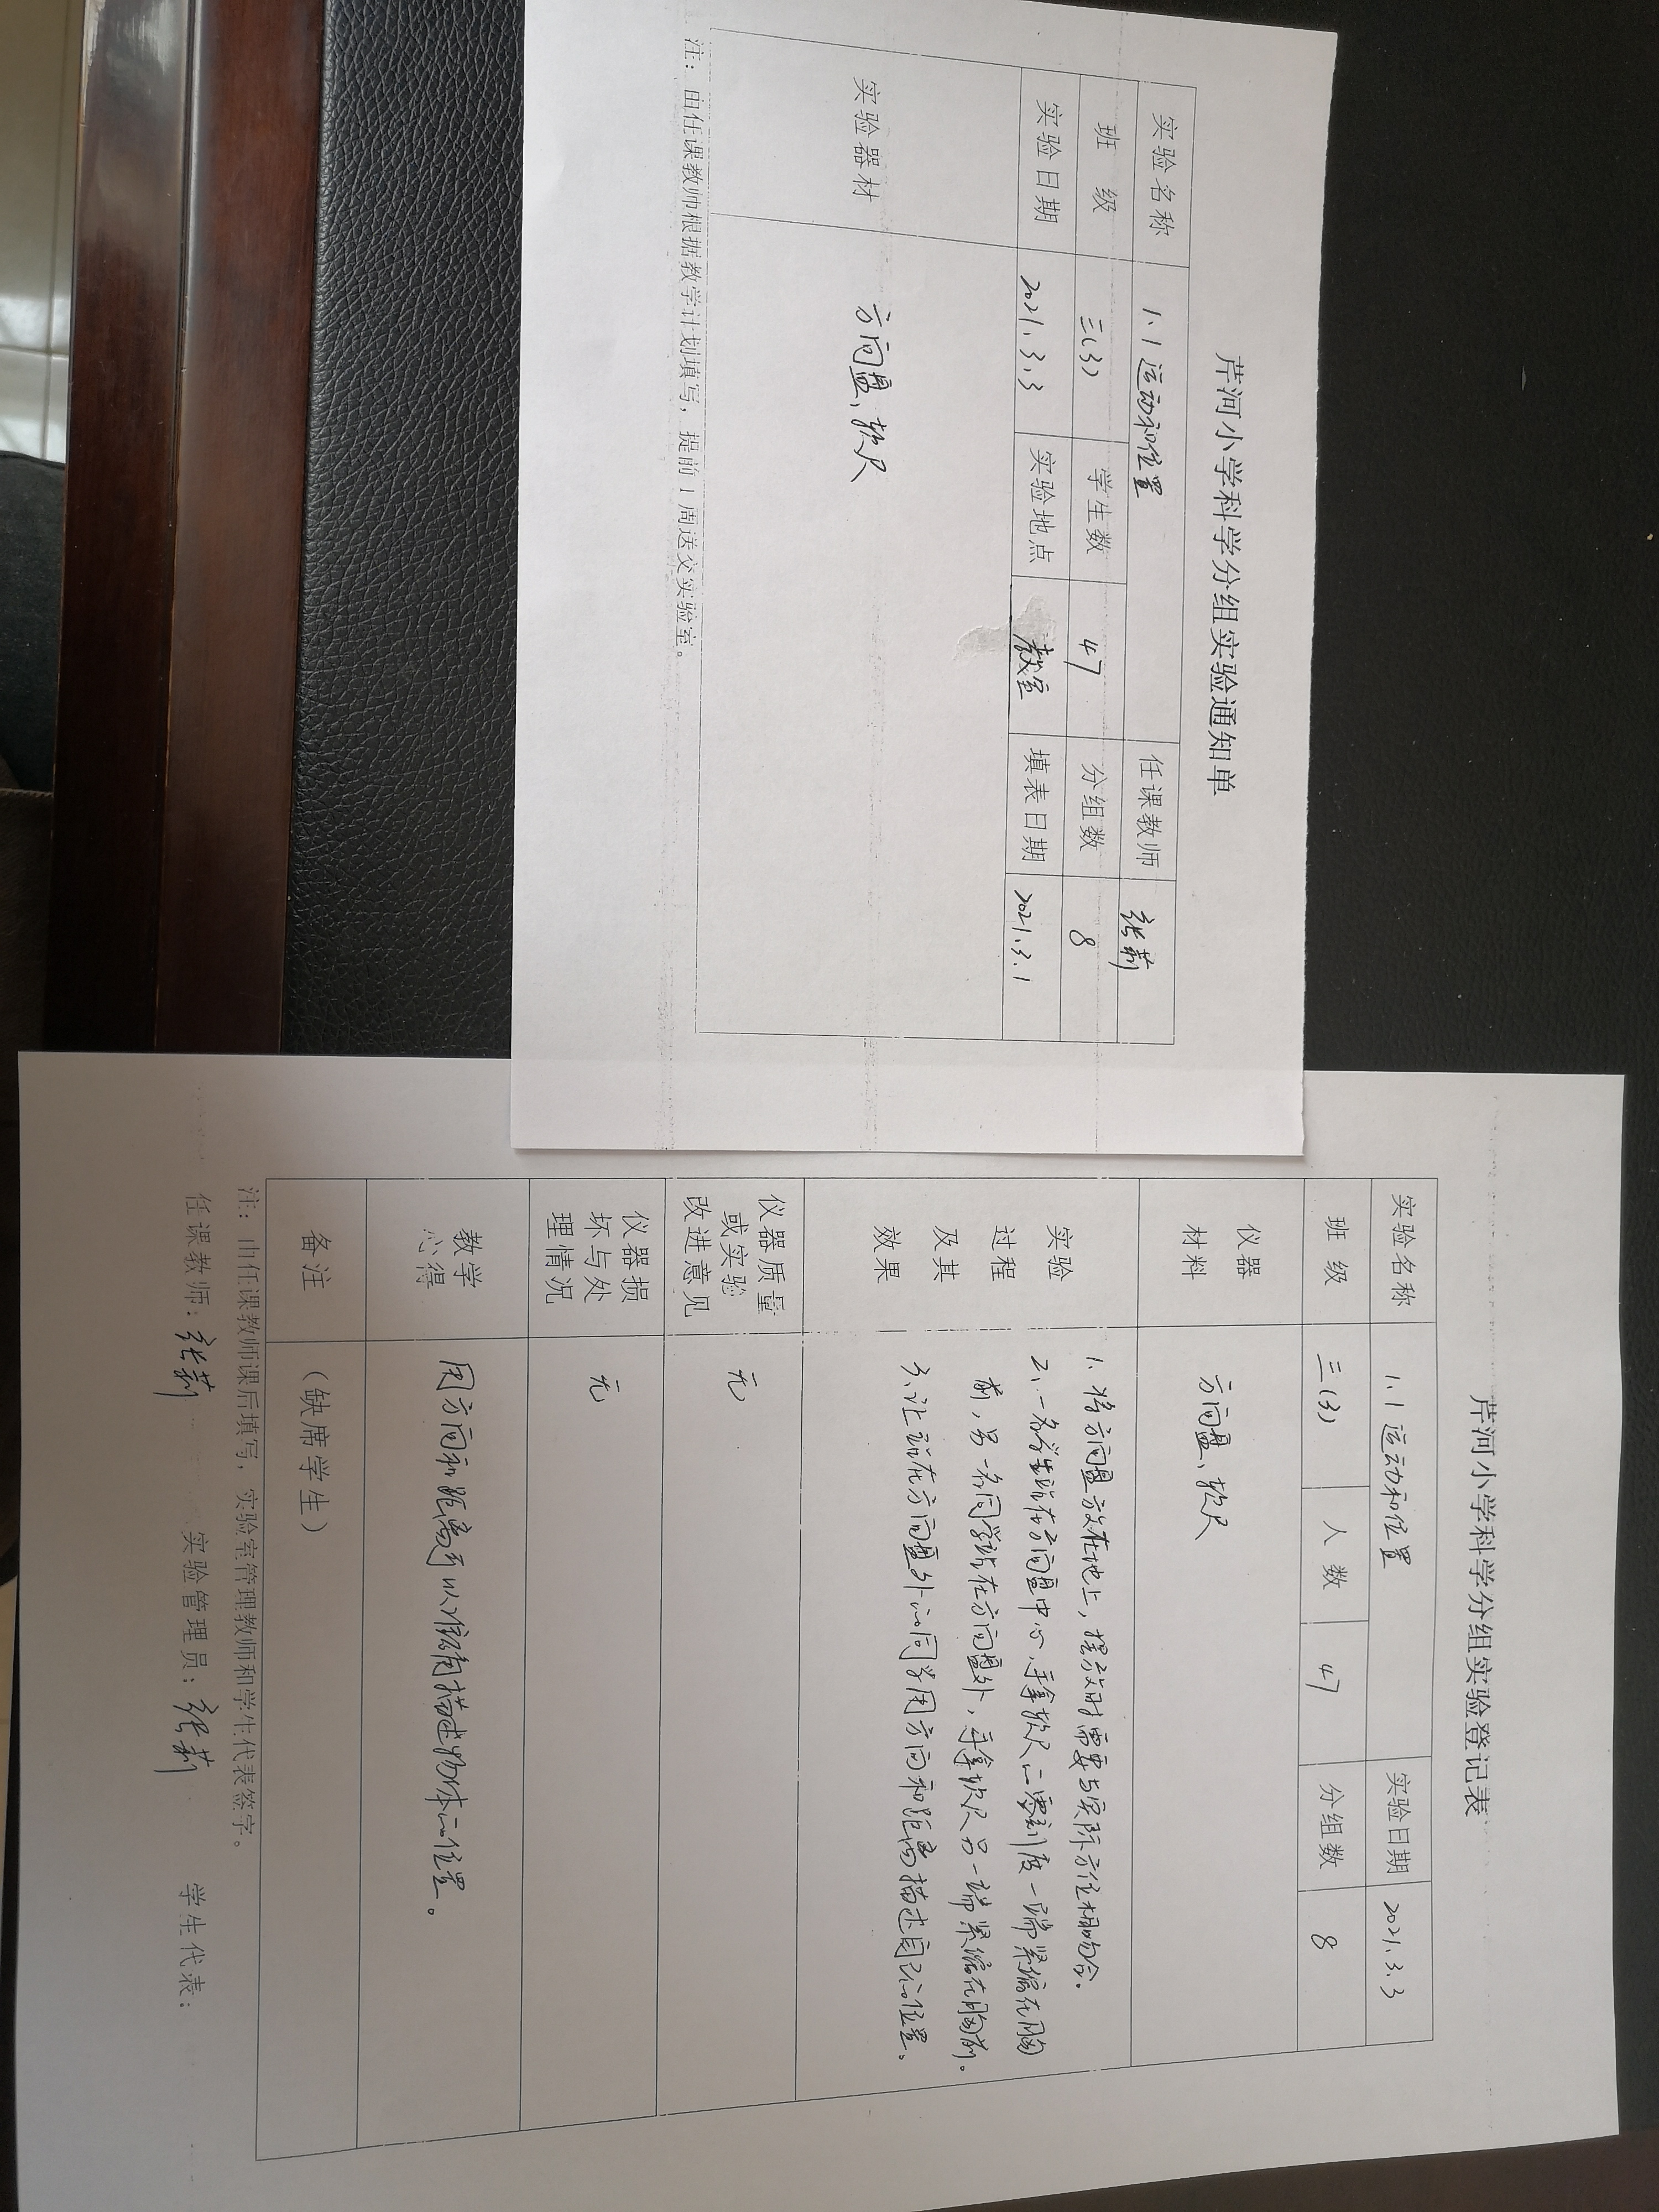 芹河小学科学分组实验通知单
实验名称 1、1 运动和位置 任课教师 张莉
班 级 三(3) 学生数 47 分组数 8
实验日期 2021、3、3 实验地点 教室 填表日期 2021、3、1
实验器材 方向盘、软尺
注：由任课教师根据教学计划填写，提前1周送交实验室。
芹河小学科学分组实验登记表
实验名称 1、1 运动和位置 实验日期 2021、3、3
班 级 三(3) 人 数 47 分组数 8
仪器
材料
方向盘、软尺
实验
过程
及其
效果
1、将方向盘放在地上，摆放时需要与实际方位相吻合。
2、一名学生站在方向盘中心，手拿软尺的零刻度一端紧偏在胸
前，另一名同学站在方向盘外，手拿软尺另一端紧偏在胸前。
3、让站在方向盘外的同学用方向和距离描述自己的位置。
仪器质量
或实验
改进意见
无
仪器损
坏与处
理情况
无
教学
心得
用方向和距离可以准确描述物体的位置。
备注 （缺席学生）
注：由任课教师课后填写，实验室管理教师和学生代表签字。
任课教师：张莉 实验管理员：张莉 学生代表：